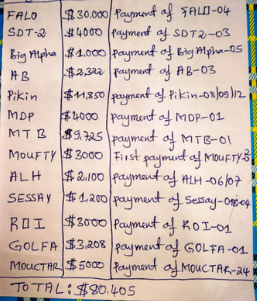 FALO $30,000 Payment of FALO-04
SDT-2 $4000 Payment of SDT2-03
Big Alpha $1,000 Payment of Big Alpha-05
AB $2,322 Payment of AB-03
Pikin $11,850 Payment of Pikin-08/09/12
MDP $4000 Payment of MDP-01
MTB $9,725 Payment of MTB-01
MOUFTY $3000 First payment of MOUFTY-
ALH $2,100 Payment of ALH-06/07
SESSAY $1,200 Payment of Sessay-
ROI $3000 Payment of ROI-01
GOLFA $3,208 Payment of GOLFA-01
MOUCTAR $5000 Payment of MOUCTAR-24
TOTAL: $80.405